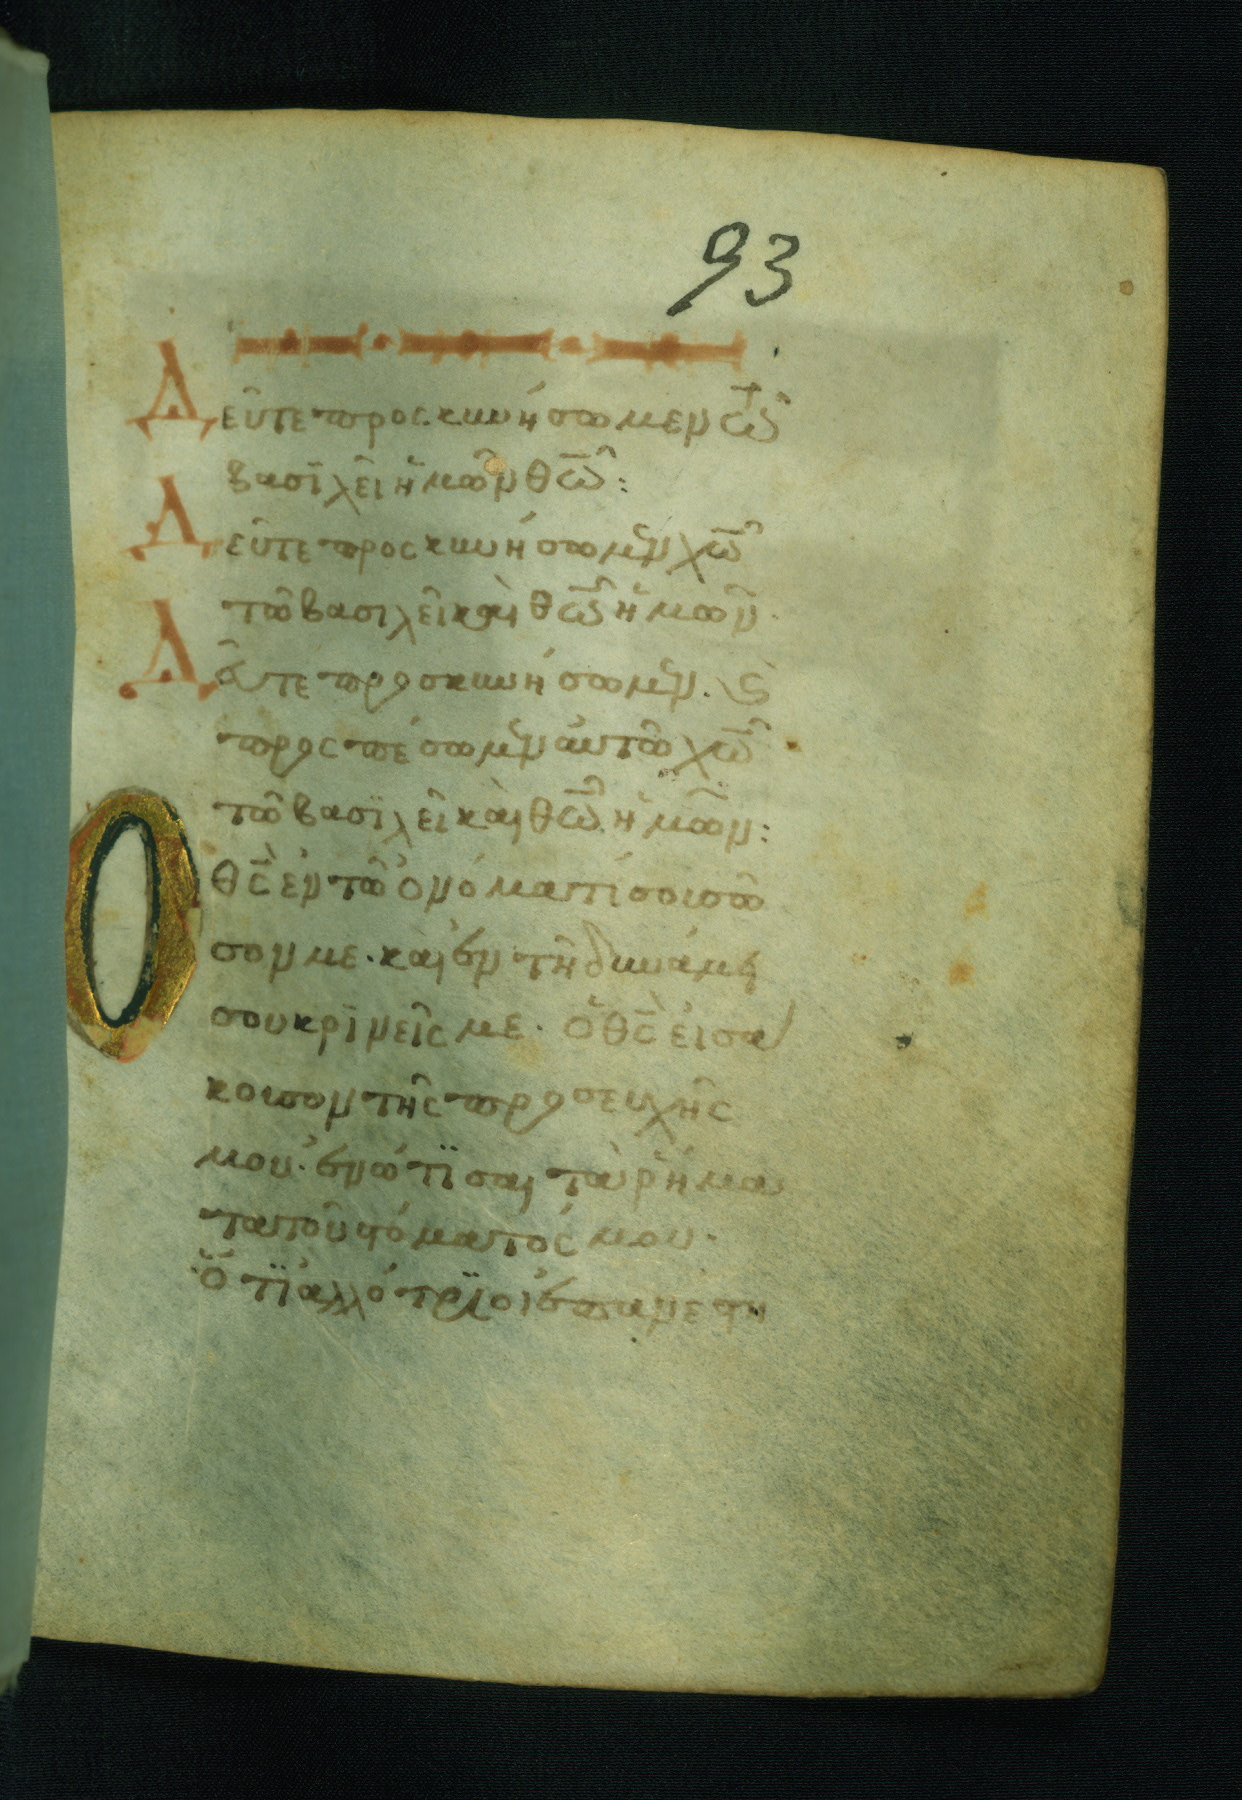 93
Δεῦτε προσκυνήσωμεν τῶ
βασϊλεῖ ἡμῶν θῶ:
Δεῦτε προσκυνήσωμεν χῶ
τῶ βασιλεῖ καὶ θῶ ἡμῶν.
Δεῦτε προσκυνήσωμεν. καὶ
προσπέσωμεν αὐτῶ χῶ
τῶ βασϊλεῖ καὶ θῶ ἡμῶν:
Ὁ θς ἐν τῶ ὀνόματί σου σῶ
σον με. καὶ ἐν τῆ δυνάμει
σου κρϊνεῖς με. ὁ θς εἰσά
κουσον τῆς προσευχῆς
μου. ἐνώτϊσαι τὰ ῥήμα
τα τοῦ στόματός μου.
Ὅτϊ ἀλλότρϊοι ἐπανέστη